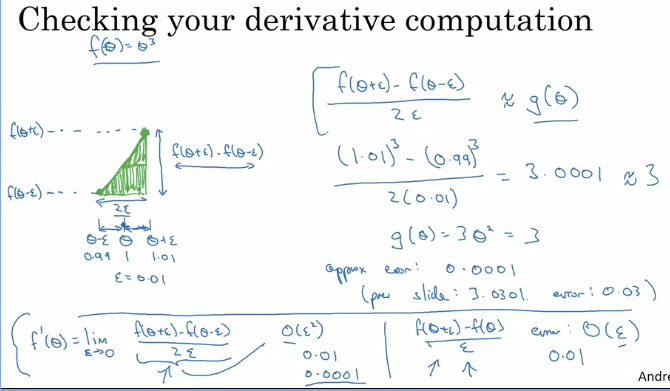 Checking your derivative computation
f(θ) = θ³
f(θ+ε) - f(θ-ε)
2ε
≈ g(θ)
f(θ+ε)
f(θ-ε)
f(θ+ε) - f(θ-ε)
(1.01)³ - (0.99)³
2(0.01)
= 3.0001 ≈ 3
2ε
θ-ε θ θ+ε
0.99 1 1.01
ε = 0.01
g(θ) = 3θ² = 3
approx error: 0.0001
(prev slide: 3.0301. error: 0.03)
f'(θ) = lim
ε→0
f(θ+ε) - f(θ-ε)
2ε
O(ε²)
0.01
0.0001
f(θ+ε) - f(θ)
ε
error: O(ε)
0.01
Andre